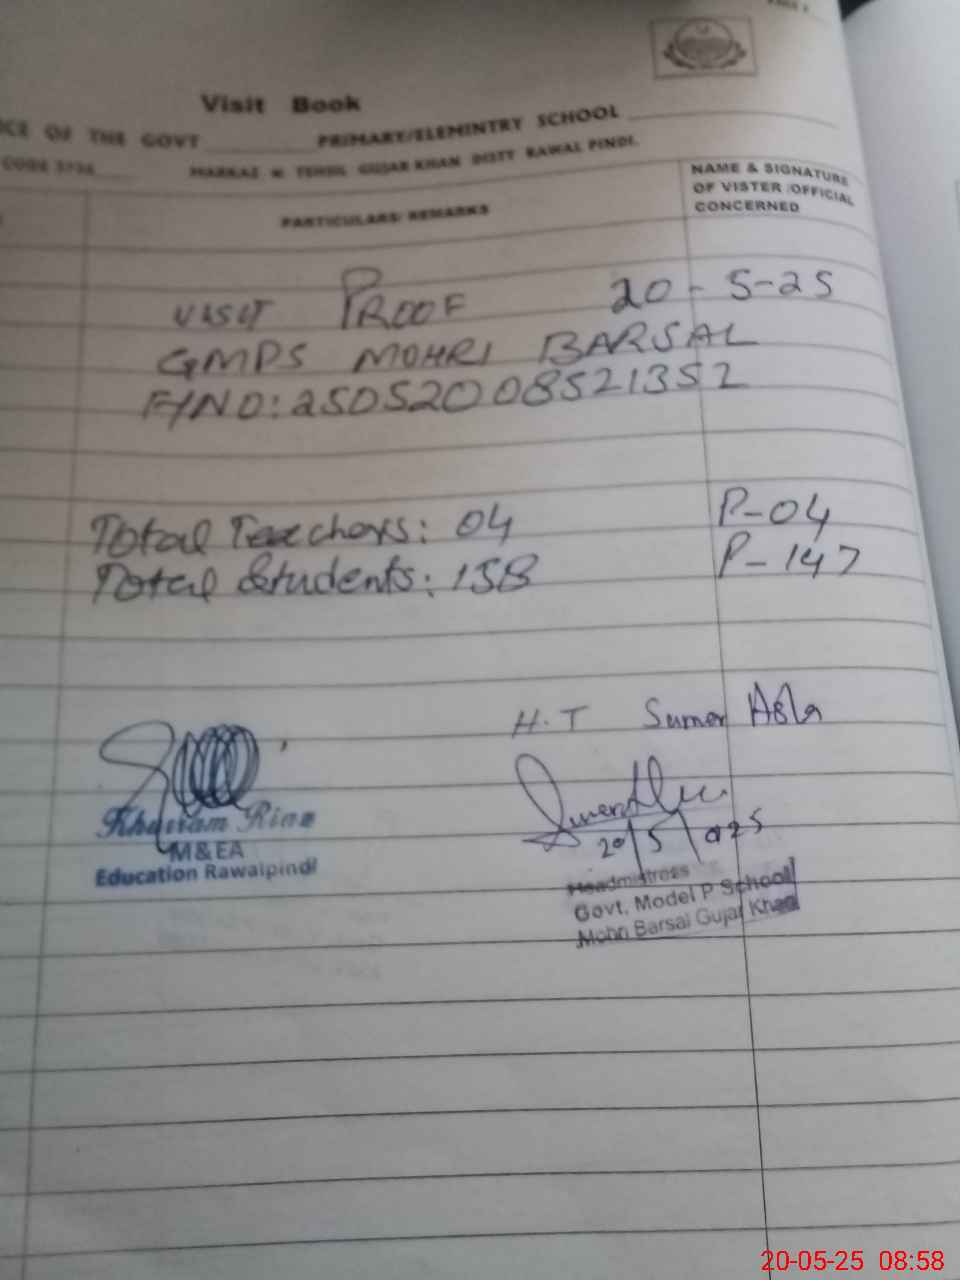 Visit Book
ICE OF THE GOVT PRIMARY/ELEMINTRY SCHOOL
CODE MARKAZ TEHSIL GUJAR KHAN DISTT RAWAL PINDI.
PARTICULARS/ REMARKS
NAME & SIGNATURE
OF VISTER /OFFICIAL
CONCERNED
VISIT PROOF 20-5-25
GMPS MOHRI BARSAL
F/NO: 25052008521352
Total Teachers: 04 P-04
Total Students: 158 P-147
H.T Sumer
Khurram Riaz
M&EA
Education Rawalpindi
20/5/025
Headmistress
Govt. Model P School
Mohri Barsal Gujar Khan
20-05-25 08:58